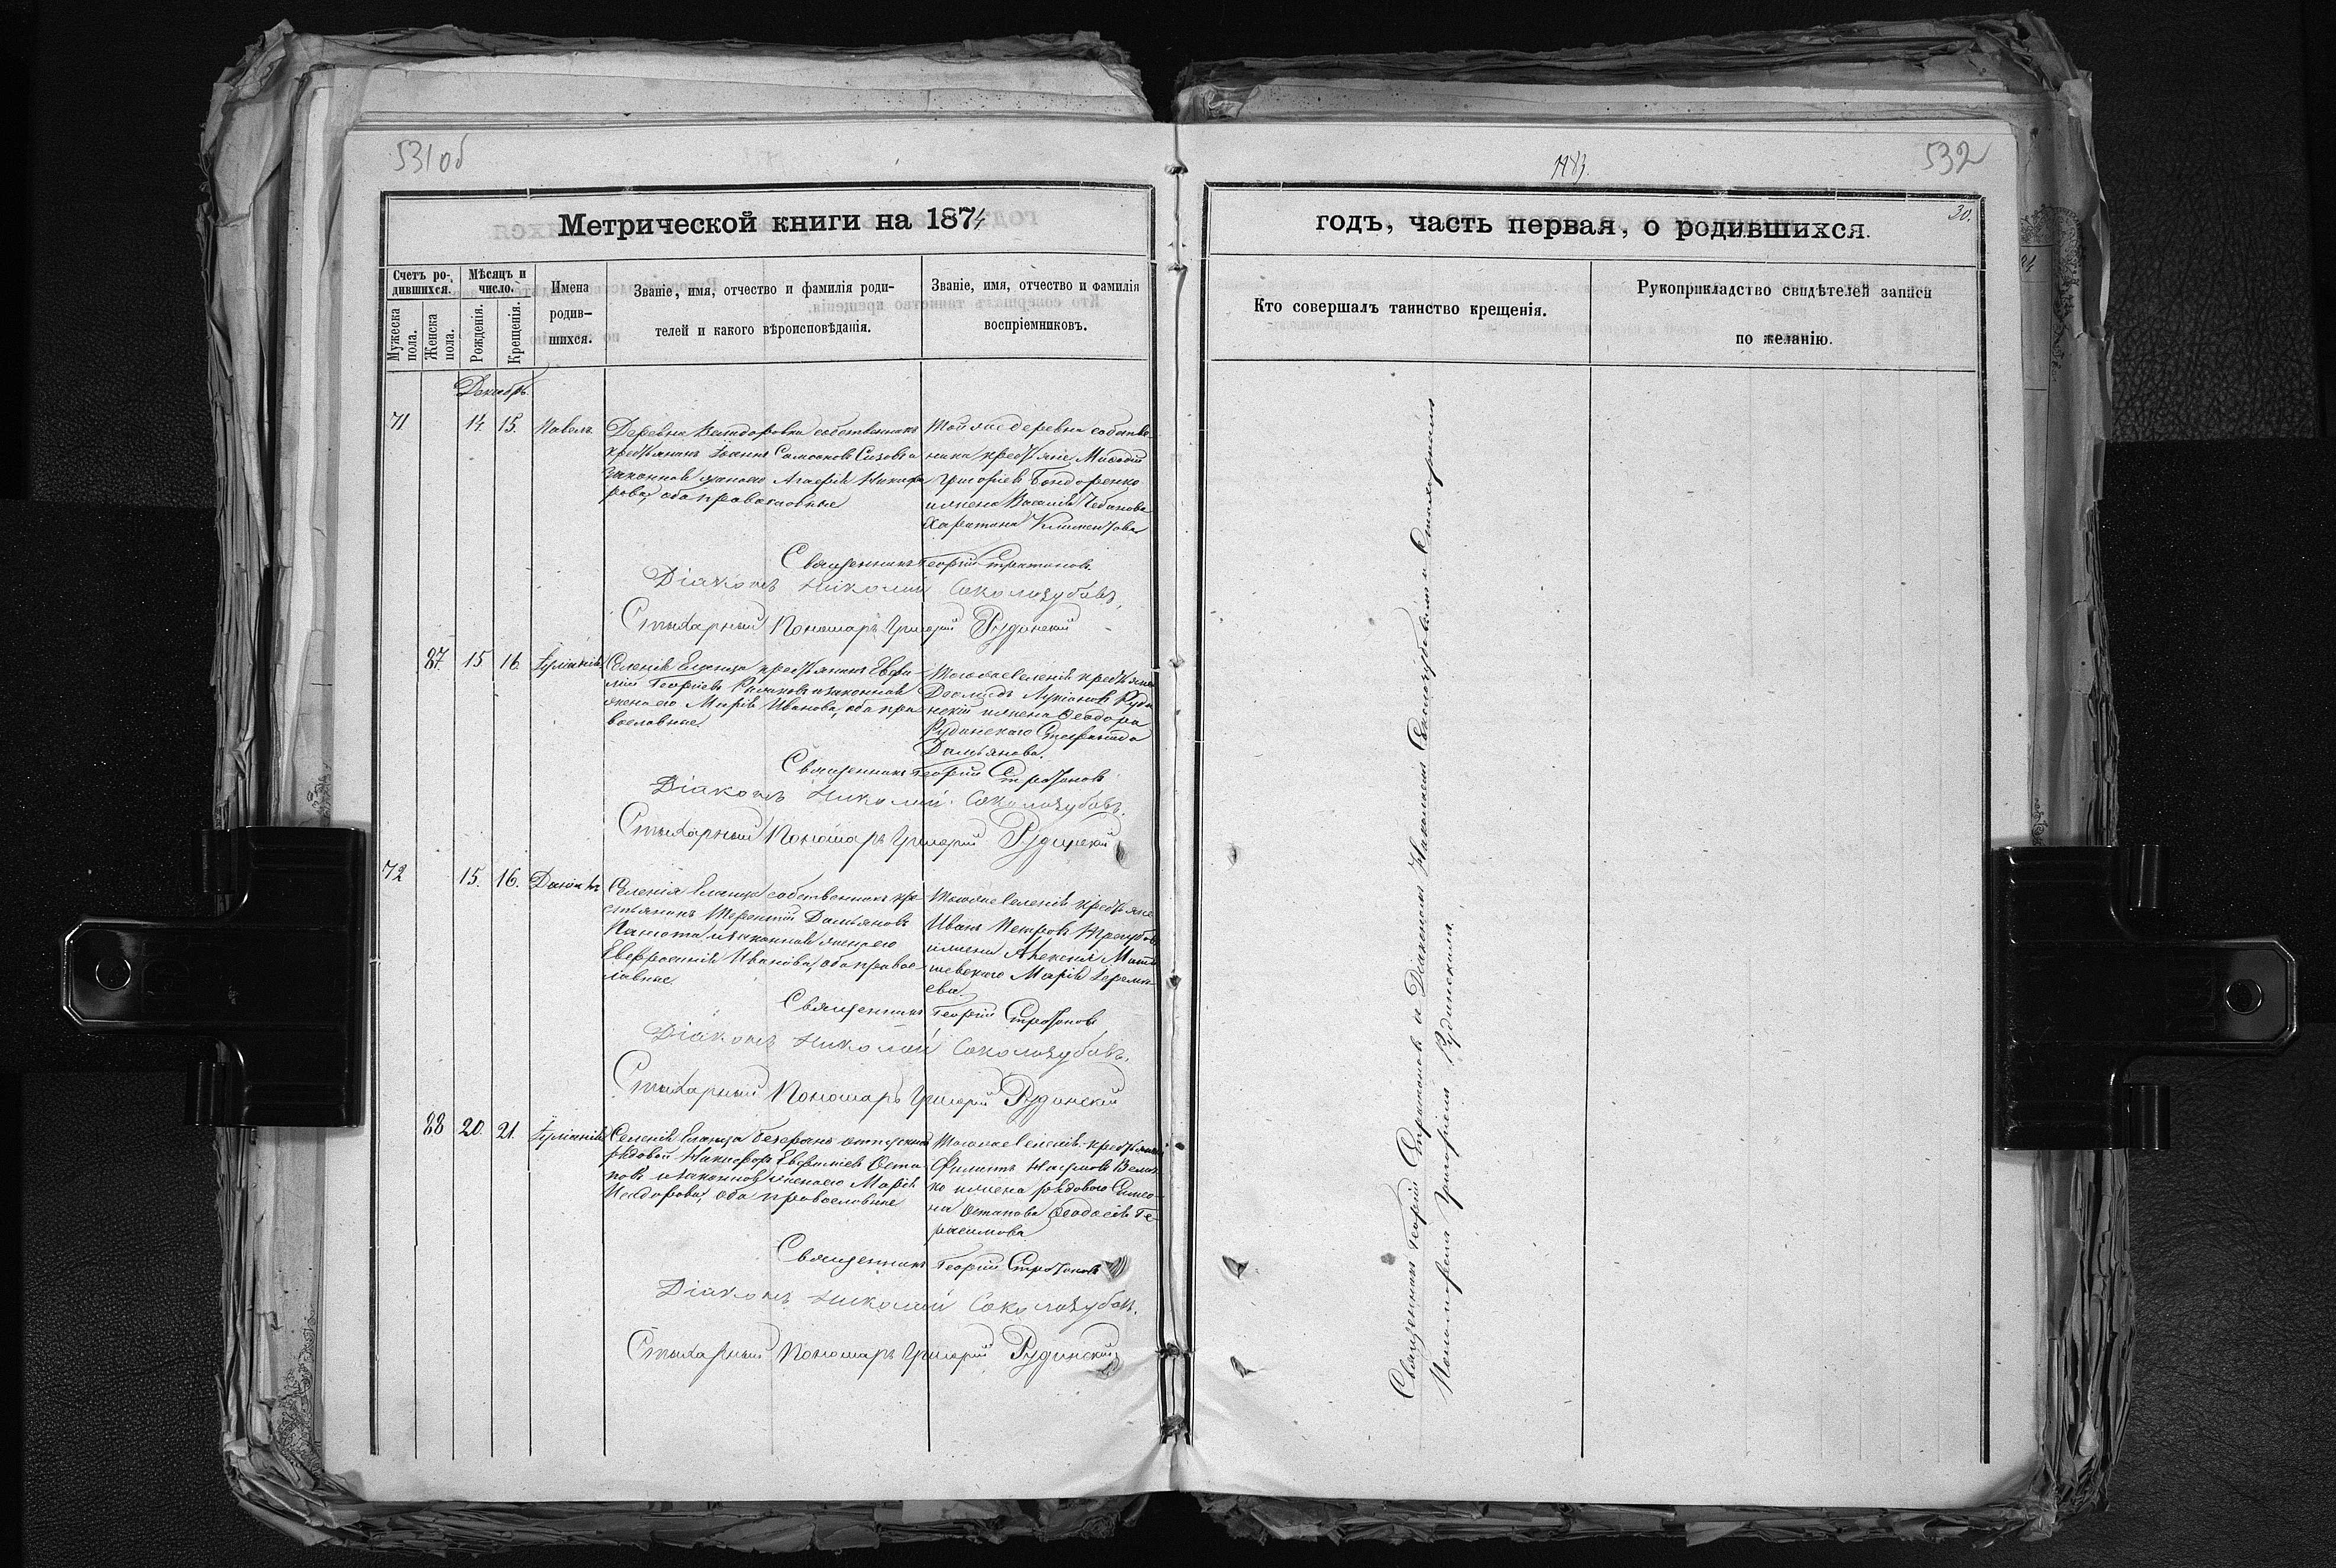 531 об
Метрической книги на 1874
Счетъ ро-
дившихся.
Мужеска
пола.
Женска
пола.
Мѣсяцъ и
число.
Рожденія.
Крещенія.
Имена
родив-
шихся.
Званіе, имя, отчество и фамилія роди-
телей и какого вѣроисповѣданія.
Званіе, имя, отчество и фамилія
воспріемниковъ.
Декабрь.
71
14. 15.
Павелъ
Деревни собственникъ
крестьянинъ Іоаннъ и
законная жена его Агафія Никифо
рова, оба православные
Той же деревни собствен
ники крестьяне Мефодій
Григоріевъ Бондоренко
и жена Василія Чебанова
Харитина Климентова
Священникъ Георгій Стратоновъ
Діаконъ Николай Соколозубовъ.
Стихарный Пономарь Григорій Рудинскій
87
15 16
Іуліанія
Селенія крестьянинъ Евѳи-
мій Георгіевъ и законная
жена его Марія Иванова, оба пра
вославные.
Того же Селенія крестьяне
Лукіановъ Руди
нскій и жена Ѳеодора
Рудинскаго Стефанида
Дамьянова.
Священникъ Георгій Стратоновъ
Діаконъ Николай Соколозубовъ.
Стихарный Пономарь Григорій Рудинскій
72
15. 16.
Даніилъ
Селенія собственникъ кре-
стьянинъ Терентій Дамьяновъ
и законная жена его
Евфросинія Иванова, оба правос-
лавные.
Того же Селенія крестьяне
Иванъ Петровъ
и жена Алексія
Марія Іереми-
ева.
Священникъ Георгій Стратоновъ
Діаконъ Николай Соколозубовъ.
Стихарный Пономарь Григорій Рудинскій
88
20. 21.
Іуліанія
Селенія отпускной
рядовой Никифоръ Евфиміевъ Оста
повъ и законная жена его Марія
Исидорова, оба православные
Того же Селенія крестьянинъ
Филиппъ Наумовъ
ко и жена рядового Симео-
на Остапова Ѳеодосія Ге-
расимова
Священникъ Георгій Стратоновъ
Діаконъ Николай Соколозубовъ.
Стихарный Пономарь Григорій Рудинскій
532
30.
годъ, часть первая, о родившихся.
Кто совершалъ таинство крещенія.
Рукоприкладство свидѣтелей записи
по желанію.
Священникъ Георгій Стратоновъ и Діакономъ Николаемъ Соколозубовымъ и Стихарнымъ
Пономаремъ Григоріемъ Рудинскимъ.